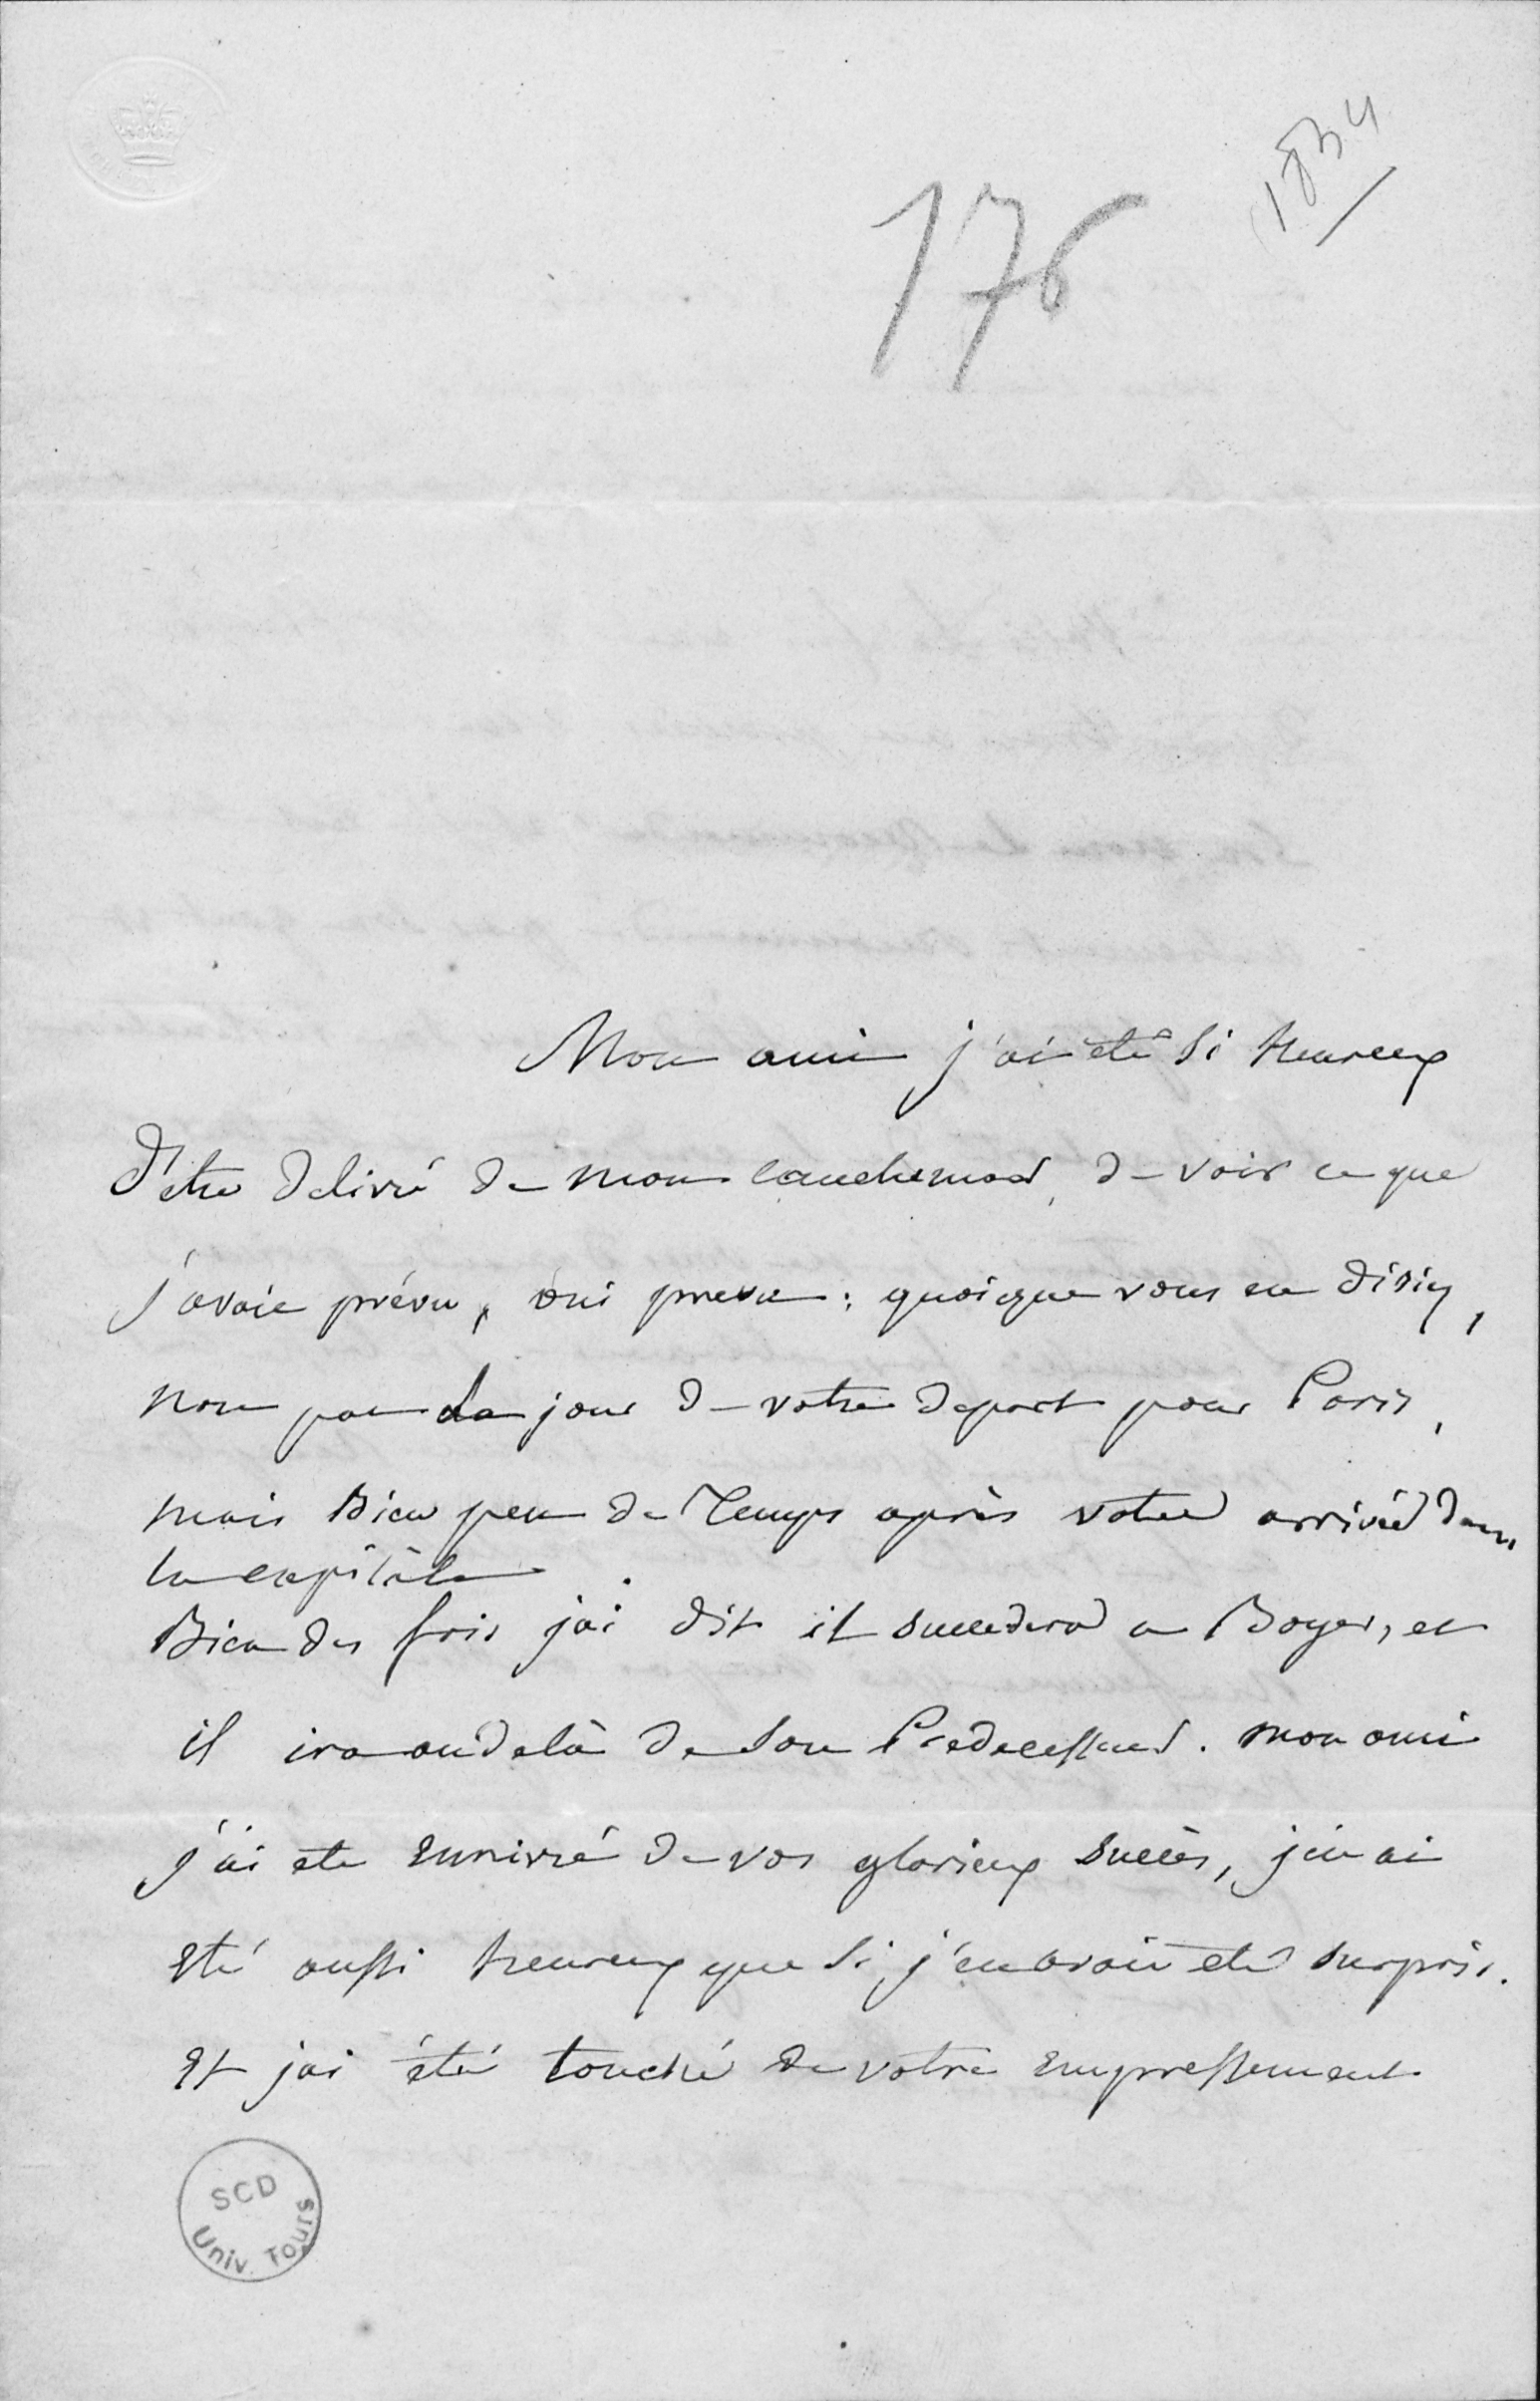 1834
176
Mon ami j'ai été si heureux
d'etre delivré de mon cauchemar, de voir ce que
j'avais prévu, oui prevu : quoique vous en disiez,
non pas le jour de votre depart pour Paris,
mais bien peu de temps après votre arrivée dans
la capitale
Bien des fois j'ai dit il succedera a Boyer, et
il ira audela de son Predecesseur. mon ami
j'ai ete ennivré de vos glorieux succès, j'en ai
eté aussi heureux que si j'en avais été surpris.
Et j'ai été touché de votre empressement
SCD
Univ. Tours